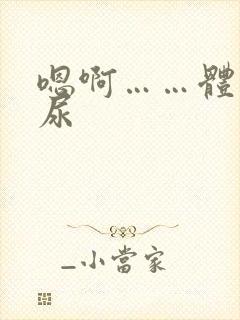 嗯啊……體
尿
_小當家